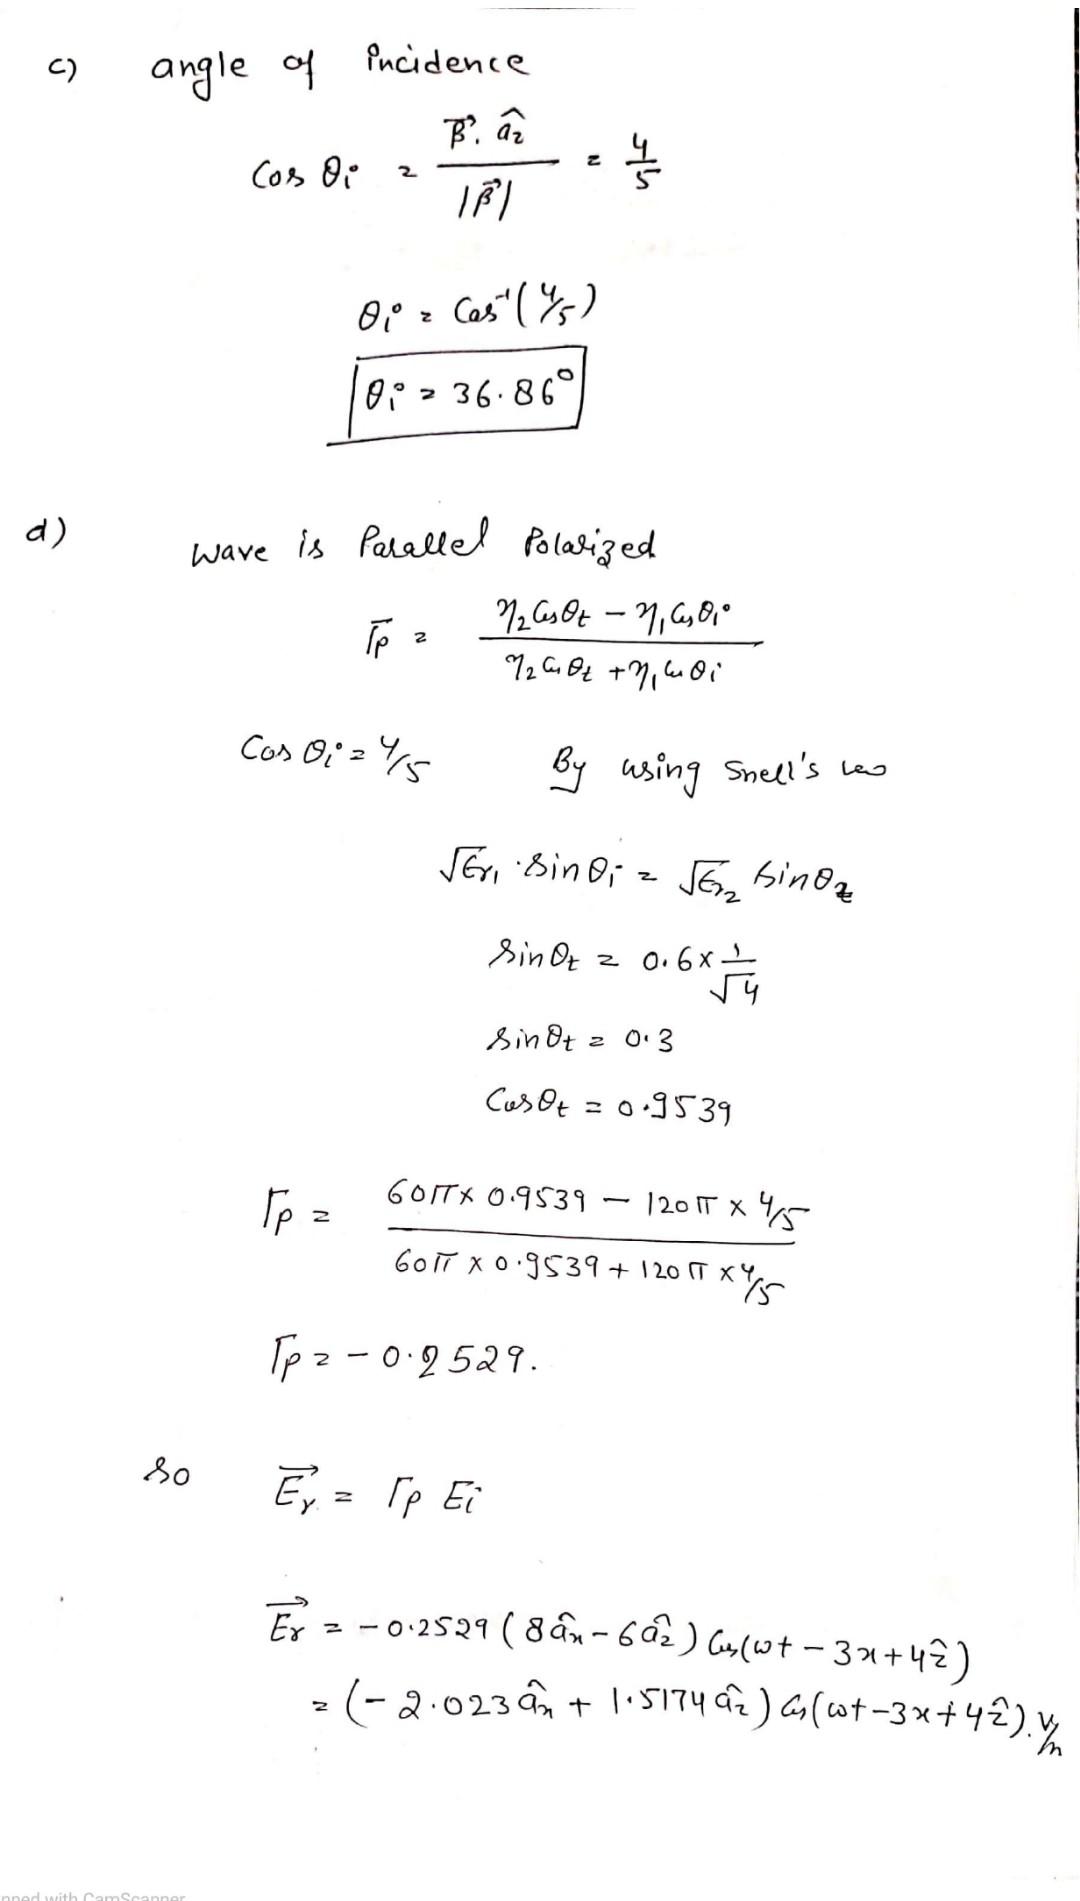 c) angle of incidence
Cos θi = β⃗ . â₂ / |β⃗| = 4/5
θi = Cos⁻¹(4/5)
θi = 36.86°
d) Wave is Parallel Polarized
Γp = η₂ Cos θt − η₁ Cos θi / η₂ Cos θt + η₁ Cos θi
Cos θi = 4/5 By using Snell's
√Er₁ . Sin θi = √Er₂ Sin θt
Sin θt = 0.6 x 1/√4
Sin θt = 0.3
Cos θt = 0.9539
Γp = 60π x 0.9539 − 120π x 4/5 / 60π x 0.9539 + 120π x 4/5
Γp = −0.2529.
So E⃗r = Γp Ei
E⃗r = −0.2529 (8âx − 6âz) Cos(ωt − 3x + 4ẑ)
= (−2.023 âx + 1.5174 âz) Cos(ωt − 3x + 4ẑ). V/m
nned with CamScanner